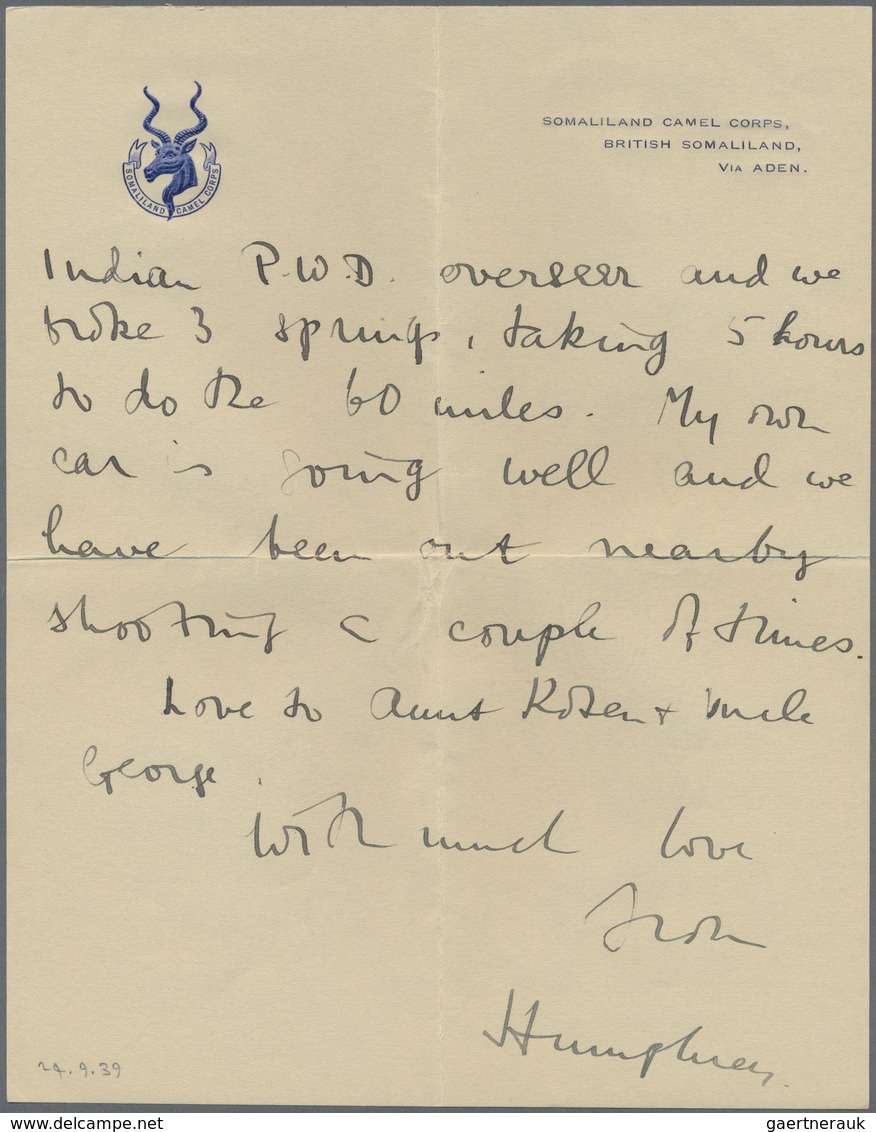 SOMALILAND CAMEL CORPS,
BRITISH SOMALILAND,
VIA ADEN.
SOMALILAND CAMEL CORPS
Indian P.W.D. overseer and we
broke 3 springs, taking 5 hours
to do the 60 miles. My own
car is going well and we
have been out nearby
shooting a couple of times.
Love to Aunt & Uncle
George.
With much love
from
Humphrey.
24.9.39
delcampe.net
gaertnerauk